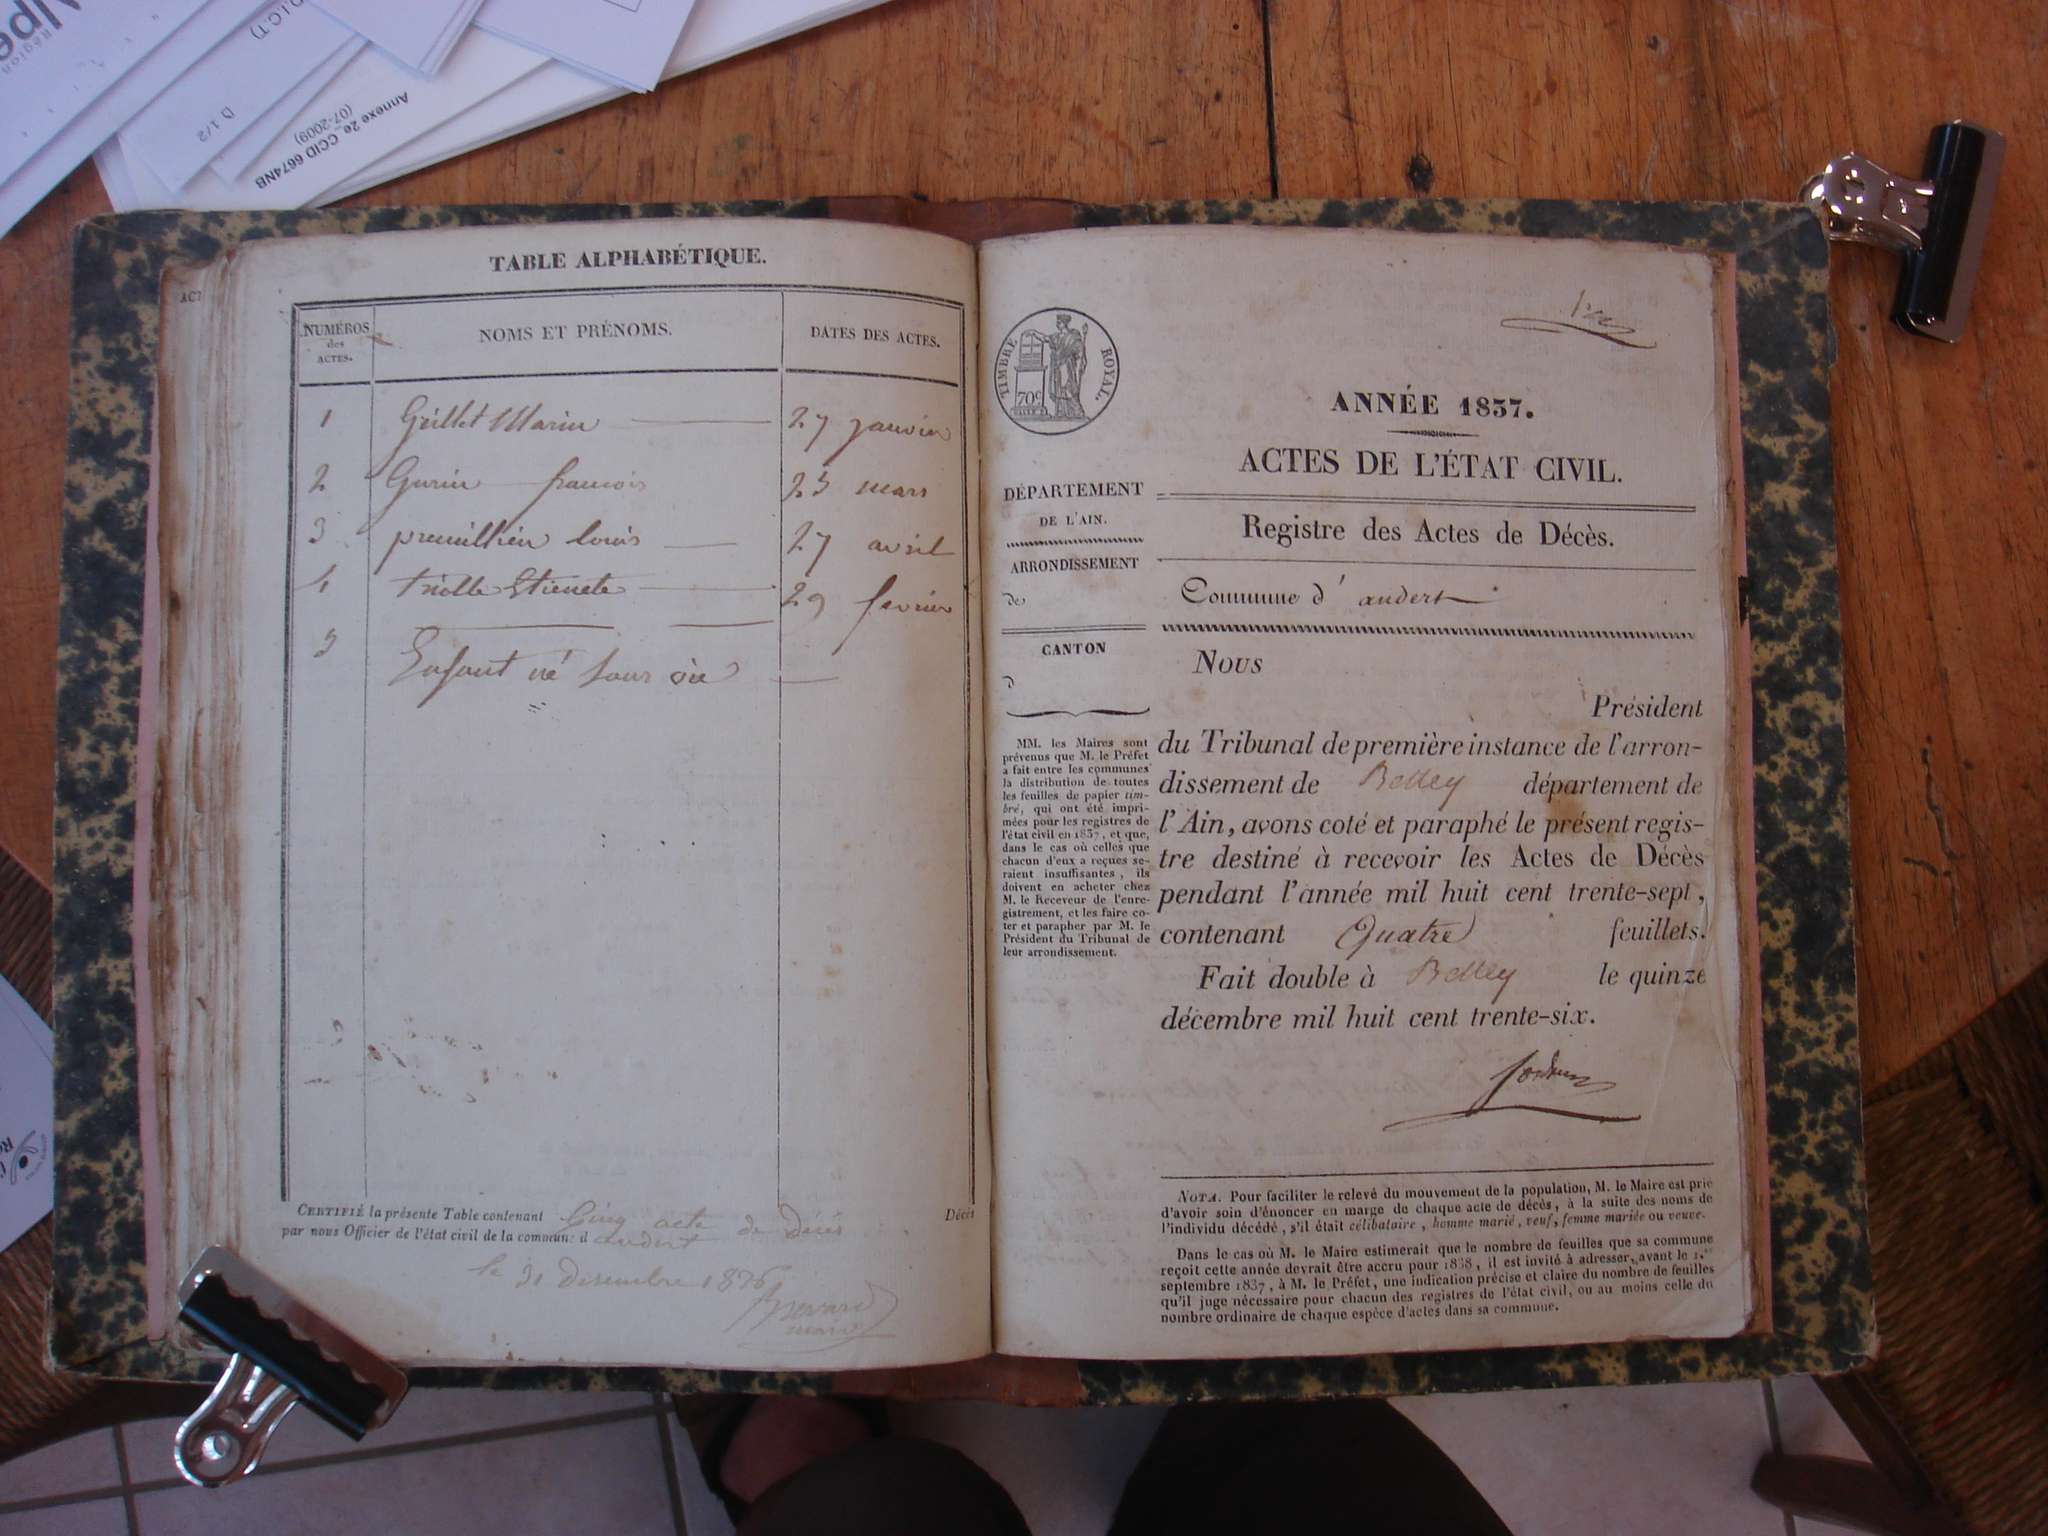 Alpe
Région
D.I.C.T)
D 1/2
Annexe 2e_CCID 6674NB
(07-2009)
ACT
TABLE ALPHABÉTIQUE.
NUMÉROS
des
ACTES.
NOMS ET PRÉNOMS.
DATES DES ACTES.
1 Guillet Marin 27 janvier
2 Gurin francois 25 mars
3 premillieu louis 27 avril
4 triolle Etienete 29 fevrier
5 Enfant né sans vie
CERTIFIÉ la présente Table contenant Cinq acte de décés
Décès
par nous Officier de l'état civil de la commune d andert
le 31 desembre 1836
Brevard
maire
TIMBRE ROYAL.
70c
ANNÉE 1837.
ACTES DE L'ÉTAT CIVIL.
DÉPARTEMENT
DE L'AIN.
Registre des Actes de Décès.
ARRONDISSEMENT
de
Commune d'andert
CANTON
d
Nous
Président
du Tribunal de première instance de l'arron-
dissement de Belley département de
l'Ain, avons coté et paraphé le présent regis-
tre destiné à recevoir les Actes de Décès
pendant l'année mil huit cent trente-sept,
contenant Quatre feuillets.
Fait double à Belley le quinze
décembre mil huit cent trente-six.
MM. les Maires sont
prévenus que M. le Préfet
a fait entre les communes
la distribution de toutes
les feuilles de papier tim-
bré, qui ont été impri-
mées pour les registres de
l'état civil en 1837, et que,
dans le cas où celles que
chacun d'eux a reçues se-
raient insuffisantes, ils
doivent en acheter chez
M. le Receveur de l'enre-
gistrement, et les faire co-
ter et parapher par M. le
Président du Tribunal de
leur arrondissement.
NOTA. Pour faciliter le relevé du mouvement de la population, M. le Maire est prié
d'avoir soin d'énoncer en marge de chaque acte de décès, à la suite des noms de
l'individu décédé, s'il était célibataire, homme marié, veuf, femme mariée ou veuve.
Dans le cas où M. le Maire estimerait que le nombre de feuilles que sa commune
reçoit cette année devrait être accru pour 1838, il est invité à adresser, avant le 1.er
septembre 1837, à M. le Préfet, une indication précise et claire du nombre de feuilles
qu'il juge nécessaire pour chacun des registres de l'état civil, ou au moins celle du
nombre ordinaire de chaque espèce d'actes dans sa commune.